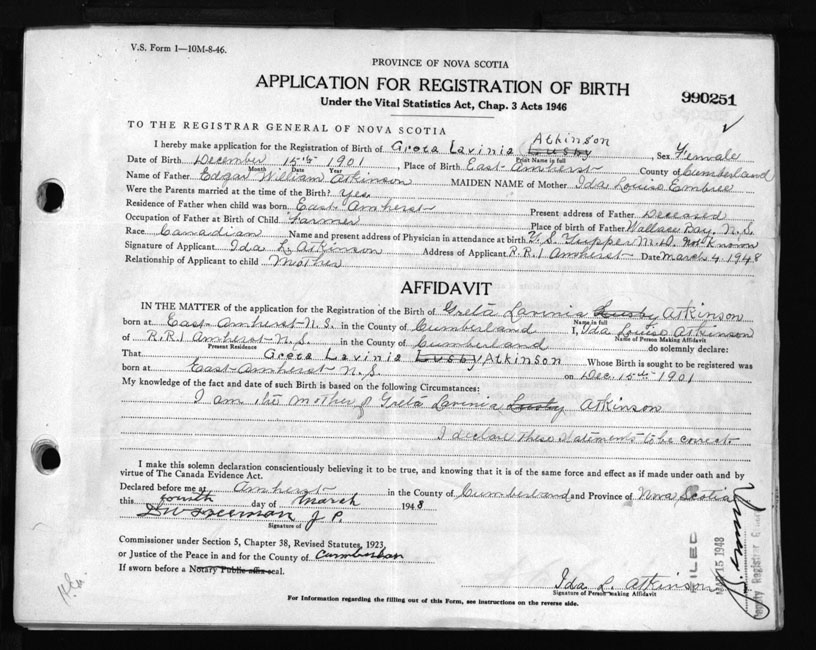 V.S. Form 1—10M-8-46.
PROVINCE OF NOVA SCOTIA
APPLICATION FOR REGISTRATION OF BIRTH
990251
Under the Vital Statistics Act, Chap. 3 Acts 1946
TO THE REGISTRAR GENERAL OF NOVA SCOTIA
Atkinson
I hereby make application for the Registration of Birth of Greta Lavinia Lusby, Sex Female
Print Name in full
Date of Birth December 15th 1901, Place of Birth East Amherst County of Cumberland
Month Date Year
Name of Father Edgar William Atkinson MAIDEN NAME of Mother Ida Louise Embree
Were the Parents married at the time of the Birth? Yes
Residence of Father when child was born East Amherst Present address of Father Deceased
Occupation of Father at Birth of Child Farmer Place of birth of Father Wallace Bay, N.S.
Race Canadian Name and present address of Physician in attendance at birth Y. S. Tupper M.D. Not Known
Signature of Applicant Ida L. Atkinson Address of Applicant R.R.1 Amherst Date March 4, 1948
Relationship of Applicant to child Mother
AFFIDAVIT
IN THE MATTER of the application for the Registration of the Birth of Greta Lavinia Lusby Atkinson
Name in full
born at East Amherst N.S. in the County of Cumberland I, Ida Louise Atkinson
Name of Person Making Affidavit
of R.R.1 Amherst N.S. in the County of Cumberland do solemnly declare:
Present Residence
That Greta Lavinia Lusby Atkinson Whose Birth is sought to be registered was
born at East Amherst N.S. on Dec. 15th 1901
My knowledge of the fact and date of such Birth is based on the following Circumstances:
I am the mother of Greta Lavinia Lusby Atkinson
I declare these statements to be correct
I make this solemn declaration conscientiously believing it to be true, and knowing that it is of the same force and effect as if made under oath and by
virtue of The Canada Evidence Act.
Declared before me at Amherst in the County of Cumberland and Province of Nova Scotia
this fourth day of March 1948
Freeman J.P.
Signature of
Commissioner under Section 5, Chapter 38, Revised Statutes, 1923,
or Justice of the Peace in and for the County of Cumberlan
If sworn before a Notary Public affix seal.
Ida L. Atkinson
Signature of Person making Affidavit
For Information regarding the filling out of this Form, see instructions on the reverse side.
FILED
MAR 15 1948
Deputy Registrar General